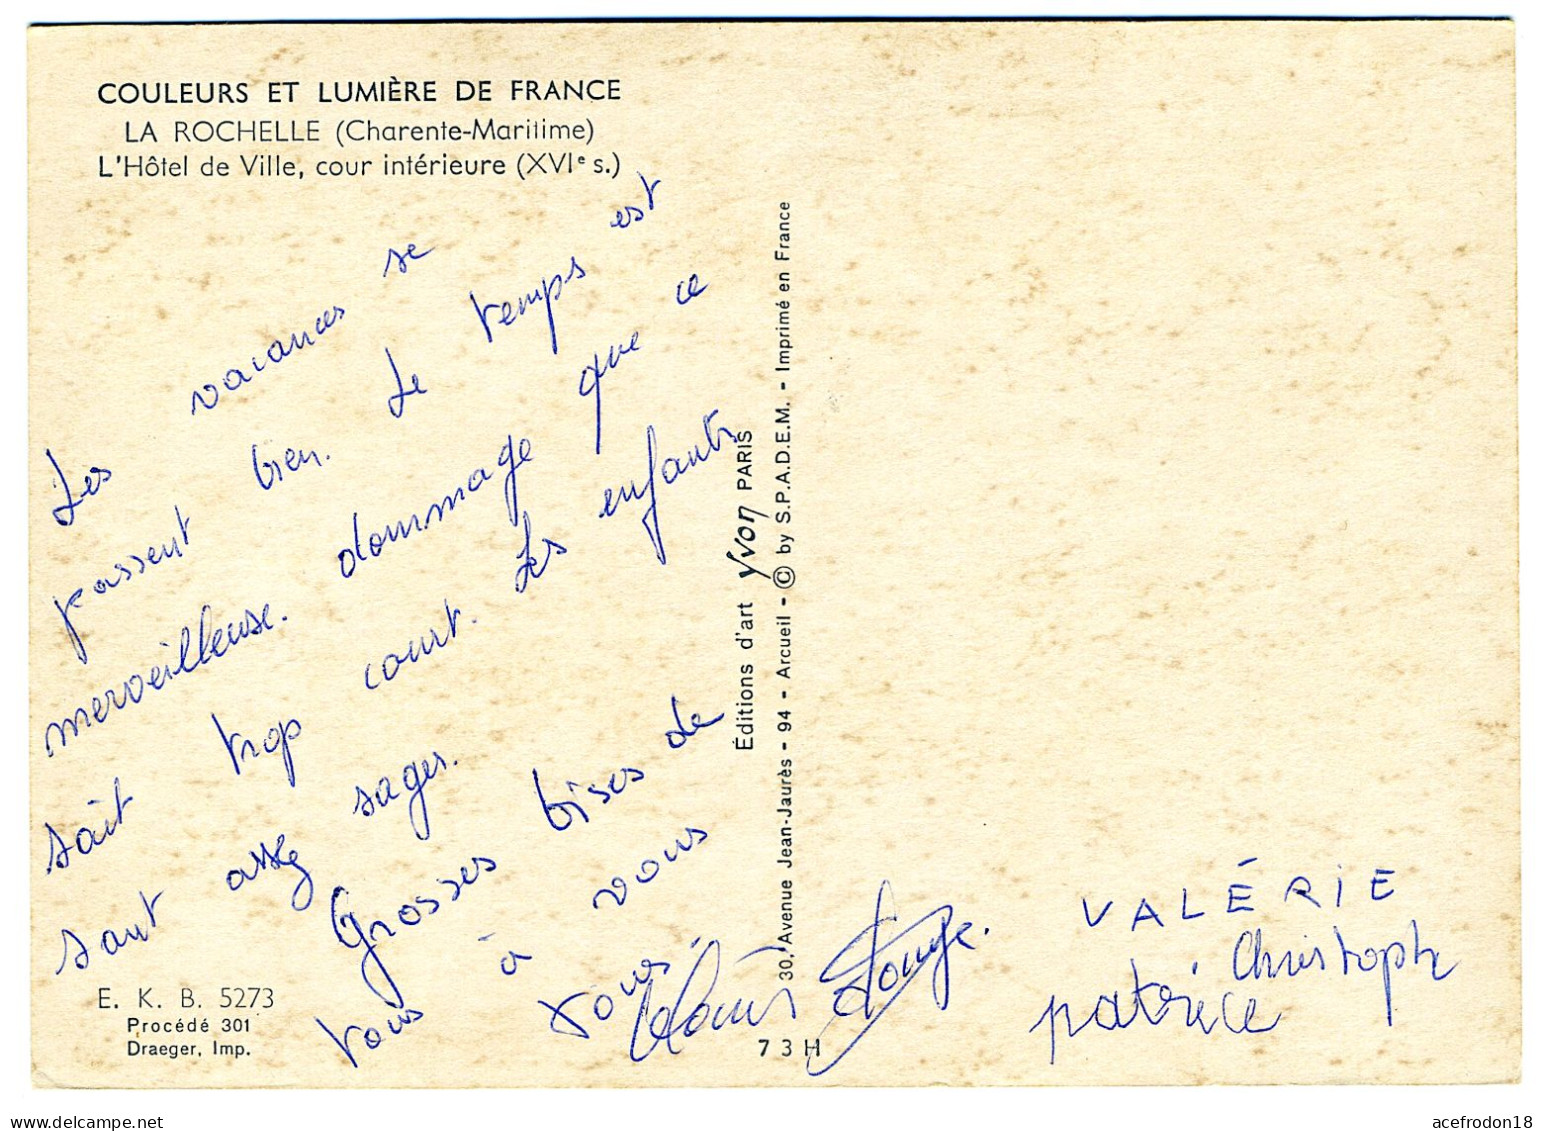 COULEURS ET LUMIÈRE DE FRANCE
LA ROCHELLE (Charente-Maritime)
L'Hôtel de Ville, cour intérieure (XVIe s.)
Les vacances se
passent bien. Le temps est
merveilleuse. dommage que ce
sait trop court. Les enfants
sant assez sages.
Grosses bises de
tous à vous
tous.
VALÉRIE
Christophe
patrice
E. K. B. 5273
Procédé 301
Draeger, Imp.
Éditions d'art yvon PARIS
30, Avenue Jean-Jaurès - 94 - Arcueil - © by S.P.A.D.E.M. - Imprimé en France
73H
acefrodon18
delcampe.net